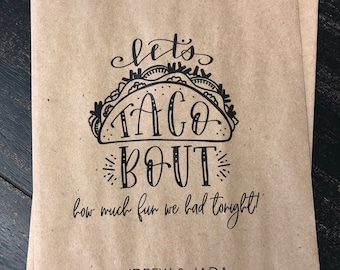 let's
TACO
BOUT
how much fun we had tonight!